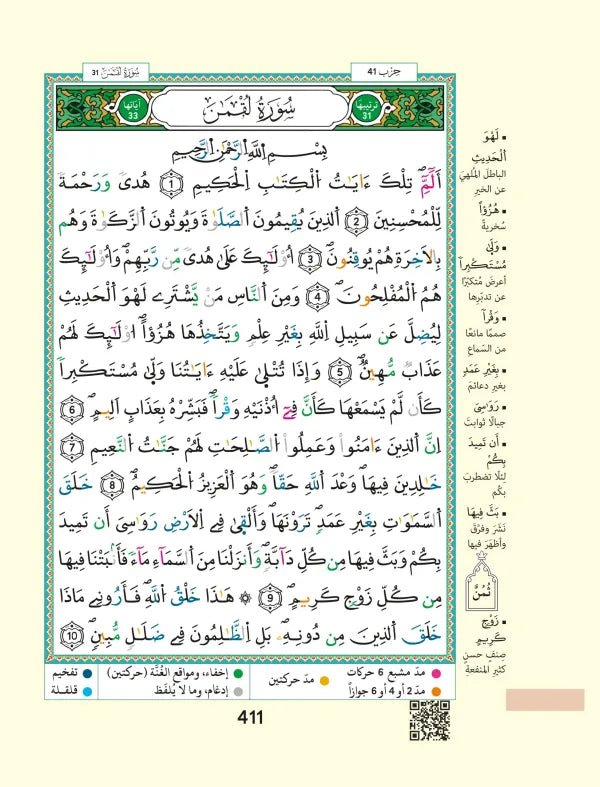 سُورَةُ لُقْمَٰنَ 31
حِزْب 41
آيَاتُهَا 33
سُورَةُ لُقْمَٰن
تَرْتِيبُهَا 31
بِسْمِ اِللَّهِ اِلرَّحْمَٰنِ اِلرَّحِيمِ
أَلَٓمِّٓۖ تِلْكَ ءَايَٰتُ اُلْكِتَٰبِ اِلْحَكِيمِ 1 هُدىٗ وَرَحْمَةٗ
لِّلْمُحْسِنِينَ 2 اَلذِينَ يُقِيمُونَ اَلصَّلَوٰةَ وَيُوتُونَ اَلزَّكَوٰةَ وَهُم
بِالَاخِرَةِ هُمْ يُوقِنُونَۖ 3 أُوْلَٰٓئِكَ عَلَىٰ هُدىٗ مِّن رَّبِّهِمْۖ وَأُوْلَٰٓئِكَ
هُمُ اُلْمُفْلِحُونَۖ 4 وَمِنَ اَلنَّاسِ مَنْ يَّشْتَرِے لَهْوَ اَلْحَدِيثِ
لِيُضِلَّ عَن سَبِيلِ اِللَّهِ بِغَيْرِ عِلْمٖ وَيَتَّخِذُهَا هُزُؤاًۖ اُوْلَٰٓئِكَ لَهُمْ
عَذَابٞ مُّهِينٞۖ 5 وَإِذَا تُتْلَىٰ عَلَيْهِ ءَايَٰتُنَا وَلَّىٰ مُسْتَكْبِراٗ
كَأَن لَّمْ يَسْمَعْهَا كَأَنَّ فِےٓ أُذْنَيْهِ وَقْراٗۖ فَبَشِّرْهُ بِعَذَابٍ اَلِيمٍۖ 6
اِنَّ اَلذِينَ ءَامَنُواْ وَعَمِلُواْ اُلصَّٰلِحَٰتِ لَهُمْ جَنَّٰتُ اُلنَّعِيمِ 7
خَٰلِدِينَ فِيهَا وَعْدَ اَللَّهِ حَقّاٗۖ وَهُوَ اَلْعَزِيزُ اُلْحَكِيمُۖ 8 خَلَقَ
اَلسَّمَٰوَٰتِ بِغَيْرِ عَمَدٖ تَرَوْنَهَاۖ وَأَلْقَىٰ فِے اِلَارْضِ رَوَٰسِيَ أَن تَمِيدَ
بِكُمْ وَبَثَّ فِيهَا مِن كُلِّ دَآبَّةٖۖ وَأَنزَلْنَا مِنَ اَلسَّمَآءِ مَآءٗ فَأَنۢبَتْنَا فِيهَا
مِن كُلِّ زَوْجٖ كَرِيمٍۖ 9 ۞ هَٰذَا خَلْقُ اُللَّهِۖ فَأَرُونِے مَاذَا
خَلَقَ اَلذِينَ مِن دُونِهِۦۖ بَلِ اِلظَّٰلِمُونَ فِے ضَلَٰلٖ مُّبِينٖۖ 10
• لَهْوَ
اَلْحَدِيثِ
الباطلَ المُلْهِيَ
عن الخيرِ
• هُزُؤاً
سُخريةً
• وَلَّىٰ
مُسْتَكْبِراٗ
أعرضَ مُتكبّرًا
عن تدبّرِها
• وَقْراٗ
صممًا مانعًا
من السّماعِ
• بِغَيْرِ عَمَدٖ
بغيرِ دعائمَ
• رَوَٰسِيَ
جبالًا ثوابتَ
• أَن تَمِيدَ
بِكُمْ
لئلّا تضطربَ
بكم
• بَثَّ فِيهَا
نَشَرَ وفرّقَ
وأظهرَ فيها
ثُمُنٌ
• زَوْجٖ
كَرِيمٍ
صِنفٍ حسنٍ
كثيرِ المنفعةِ
مدّ مشبع 6 حركات
مدّ 2 أو 4 أو 6 جوازاً
مدّ حركتين
إخفاء، ومواقع الغُنَّة (حركتين)
إدغام، وما لا يُلفَظ
تفخيم
قلقلة
411